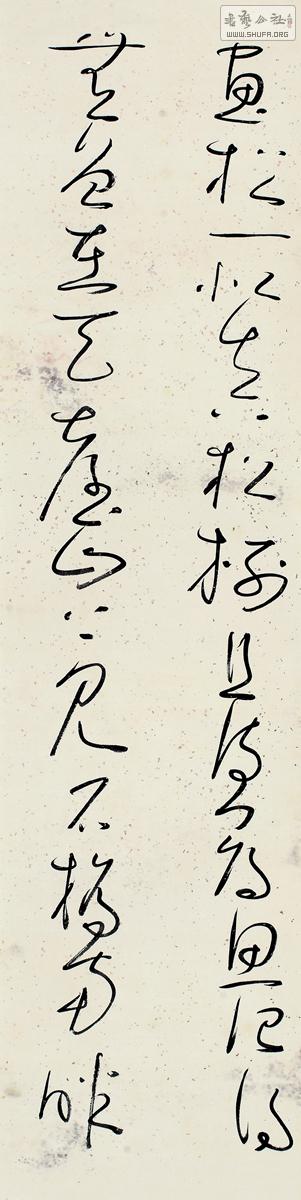 書藝公社
WWW.SHUFA.ORG
畫松一似真松樹且待尋思記得
無曾在天臺山上見石橋南畔